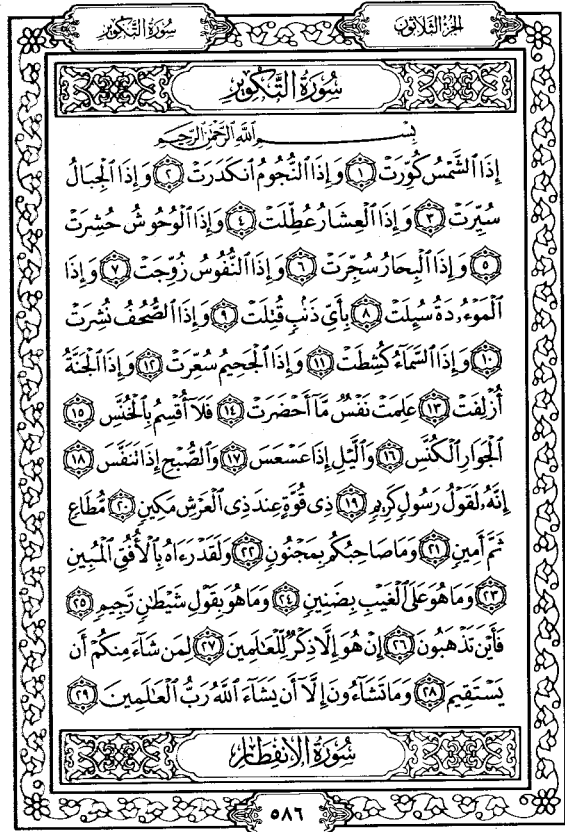 سُورَةُ التَّكْوِيرِ
الجُزْءُ الثَّلَاثُونَ
سُورَةُ التَّكْوِيرِ
بِسْمِ اللَّهِ الرَّحْمَٰنِ الرَّحِيمِ
إِذَا ٱلشَّمْسُ كُوِّرَتْ ١ وَإِذَا ٱلنُّجُومُ ٱنكَدَرَتْ ٢ وَإِذَا ٱلْجِبَالُ
سُيِّرَتْ ٣ وَإِذَا ٱلْعِشَارُ عُطِّلَتْ ٤ وَإِذَا ٱلْوُحُوشُ حُشِرَتْ
٥ وَإِذَا ٱلْبِحَارُ سُجِّرَتْ ٦ وَإِذَا ٱلنُّفُوسُ زُوِّجَتْ ٧ وَإِذَا
ٱلْمَوْءُۥدَةُ سُئِلَتْ ٨ بِأَىِّ ذَنۢبٍ قُتِلَتْ ٩ وَإِذَا ٱلصُّحُفُ نُشِرَتْ
١٠ وَإِذَا ٱلسَّمَآءُ كُشِطَتْ ١١ وَإِذَا ٱلْجَحِيمُ سُعِّرَتْ ١٢ وَإِذَا ٱلْجَنَّةُ
أُزْلِفَتْ ١٣ عَلِمَتْ نَفْسٌ مَّآ أَحْضَرَتْ ١٤ فَلَآ أُقْسِمُ بِٱلْخُنَّسِ ١٥
ٱلْجَوَارِ ٱلْكُنَّسِ ١٦ وَٱلَّيْلِ إِذَا عَسْعَسَ ١٧ وَٱلصُّبْحِ إِذَا تَنَفَّسَ ١٨
إِنَّهُۥ لَقَوْلُ رَسُولٍ كَرِيمٍ ١٩ ذِى قُوَّةٍ عِندَ ذِى ٱلْعَرْشِ مَكِينٍ ٢٠ مُّطَاعٍ
ثَمَّ أَمِينٍ ٢١ وَمَا صَاحِبُكُم بِمَجْنُونٍ ٢٢ وَلَقَدْ رَءَاهُ بِٱلْأُفُقِ ٱلْمُبِينِ
٢٣ وَمَا هُوَ عَلَى ٱلْغَيْبِ بِضَنِينٍ ٢٤ وَمَا هُوَ بِقَوْلِ شَيْطَٰنٍ رَّجِيمٍ ٢٥
فَأَيْنَ تَذْهَبُونَ ٢٦ إِنْ هُوَ إِلَّا ذِكْرٌ لِّلْعَٰلَمِينَ ٢٧ لِمَن شَآءَ مِنكُمْ أَن
يَسْتَقِيمَ ٢٨ وَمَا تَشَآءُونَ إِلَّآ أَن يَشَآءَ ٱللَّهُ رَبُّ ٱلْعَٰلَمِينَ ٢٩
سُورَةُ الِانفِطَارِ
٥٨٦